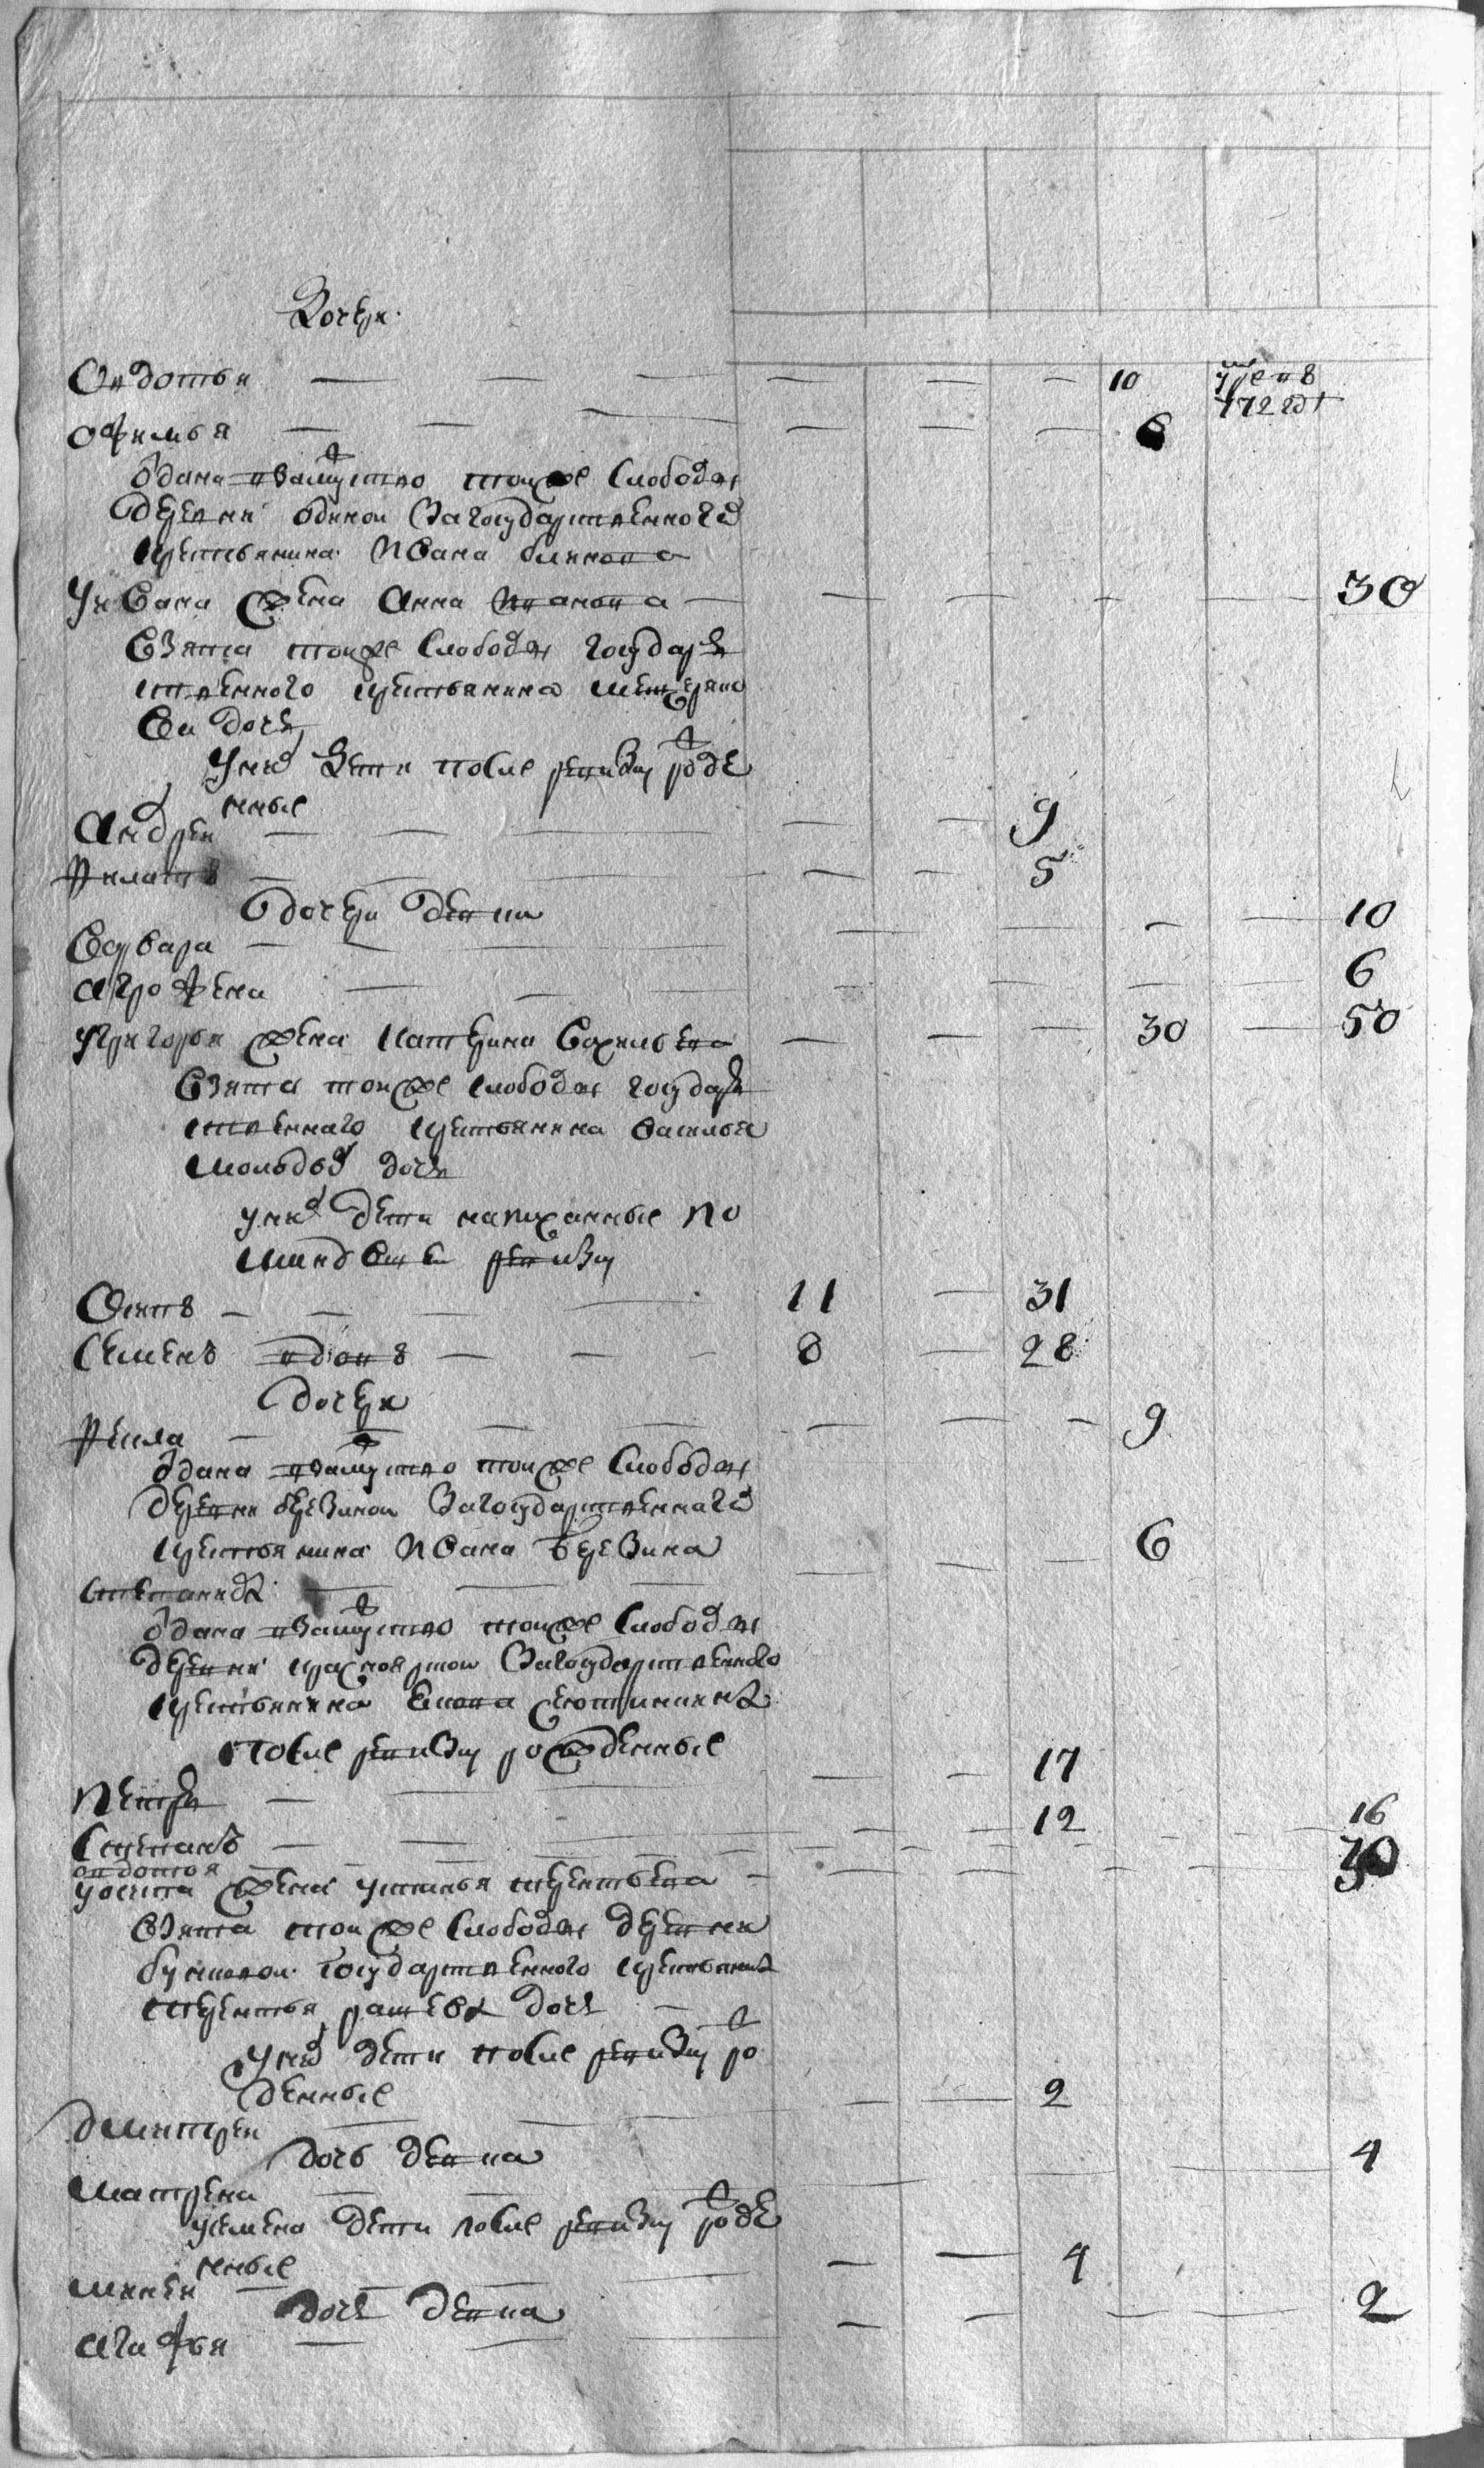 Дочери
Овдотья — — — — — — 10 умре в
772 год
Офимья — — — — — — 6
одана взамуство тоиже слободы
деревни одиной за государственного
крестьянина Ивана блинова
У Ивана жена Анна Иванова — — — — — — 30
взята тоиже слободы государ
ственного крестьянина
ва дочь
У них дети после ревизи рожде
нные
Андрей — — — — — 9
Филатъ — — — — — 5
дочери девки
Варвара — — — — — — — 10
Аграфена — — — — — — 6
У Григорья жена Катерина Васильева — — — 30 — 50
взята тоиже слободы государ
ственнаго крестьянина Василья
дочь
у них дети написанные по
последней ревизи
Осипъ — — — — 11 — 31
Семенъ вдовъ — — — 8 — 28
дочери
Фекла — — — — — — — 9
одана взамуство тоиже слободы
деревни березиной за государственнаго
крестьянина Ивана Березина
Степанида — — — — — — 6
одана взамуство тоиже слободы
деревни красноярской за государственного
крестьянина
После ревизи рожденные
Петръ — — — — — 17
Степанъ — — — — — 12
овдотья — — — — — — — — 16
У Осипа жена Устинья Терентьева — — — — — 30
взята тоиже слободы деревни
государственного крестьянина
Терентья дочь
У них дети после ревизи ро
жденные
Дмитрей — — — — 2
дочь девка
Матрена — — — — — — 4
У Семена дети после ревизи рожде
нные
Миней — — — — — 4
дочь девка
Агафья — — — — — — — 2